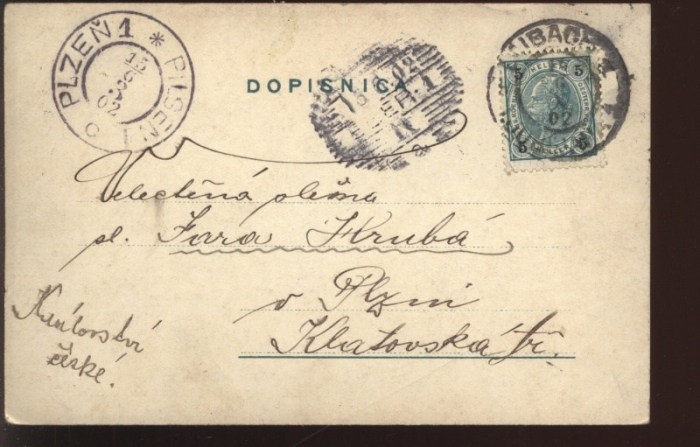 PLZEŇ 1 * PILSEN 1
15
02
DOPISNICA
LAIBACH
02
5 5
5 5
Velectěná slečna
sl. Jara Hrubá
v Plzni
Klatovská tř.
Království
české.